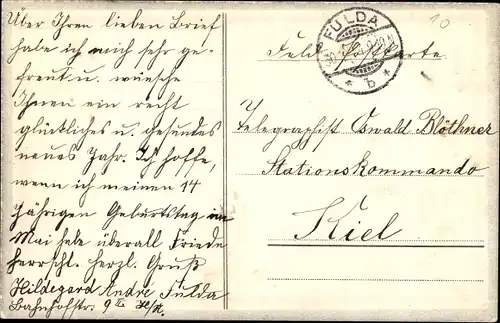 Über Ihren lieben Brief
habe ich mich sehr ge-
freut u. wünsche
Ihnen ein recht
glückliches u. gesundes
neues Jahr. Ich hoffe,
wenn ich meinen 14
jährigen Geburtstag im
Mai habe überall Friede
herrscht. Herzl. Gruß
Hildegard André Fulda
Bahnhofstr. 9 II
FULDA
* b *
10
Feldpostkarte.
Telegraphist Oswald Blöthner
Stationskommando
Kiel